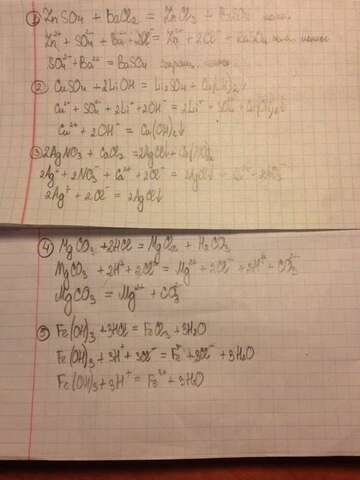 ① ZnSO4 + BaCl2 = ZnCl2 + BaSO4
Zn²⁺ + SO4²⁻ + Ba²⁺ + 2Cl⁻ = Zn²⁺ + 2Cl⁻ + BaSO4
SO4²⁻ + Ba²⁺ = BaSO4
② CuSO4 + 2LiOH = Li2SO4 + Cu(OH)2↓
Cu²⁺ + SO4²⁻ + 2Li⁺ + 2OH⁻ = 2Li⁺ + SO4²⁻ + Cu(OH)2↓
Cu²⁺ + 2OH⁻ = Cu(OH)2↓
③ 2AgNO3 + CaCl2 = 2AgCl↓ + Ca(NO3)2
2Ag⁺ + 2NO3⁻ + Ca²⁺ + 2Cl⁻ = 2AgCl↓ + Ca²⁺ + 2NO3⁻
2Ag⁺ + 2Cl⁻ = 2AgCl↓
④ MgCO3 + 2HCl = MgCl2 + H2CO3
MgCO3 + 2H⁺ + 2Cl⁻ = Mg²⁺ + 2Cl⁻ + 2H⁺ + CO3²⁻
MgCO3 = Mg²⁺ + CO3²⁻
⑤ Fe(OH)3 + 3HCl = FeCl3 + 3H2O
Fe(OH)3 + 3H⁺ + 3Cl⁻ = Fe³⁺ + 3Cl⁻ + 3H2O
Fe(OH)3 + 3H⁺ = Fe³⁺ + 3H2O